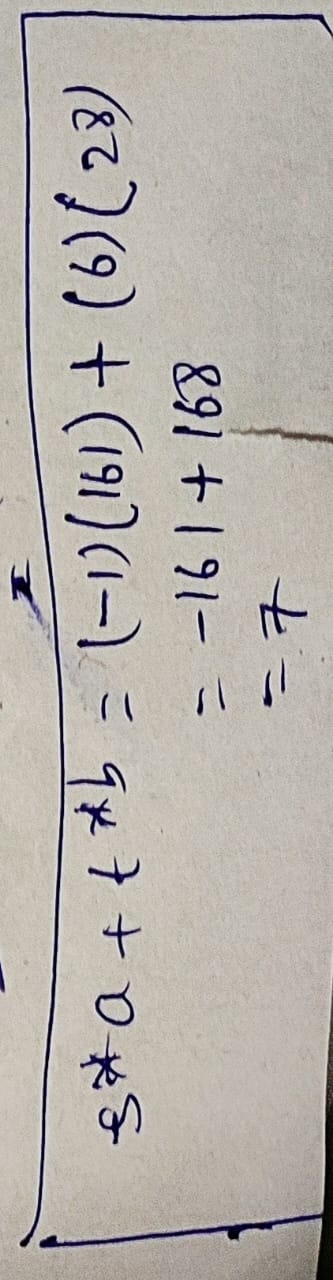 s*a + t*b = (-1)(161) + (6)(28)
= -161 + 168
= 7